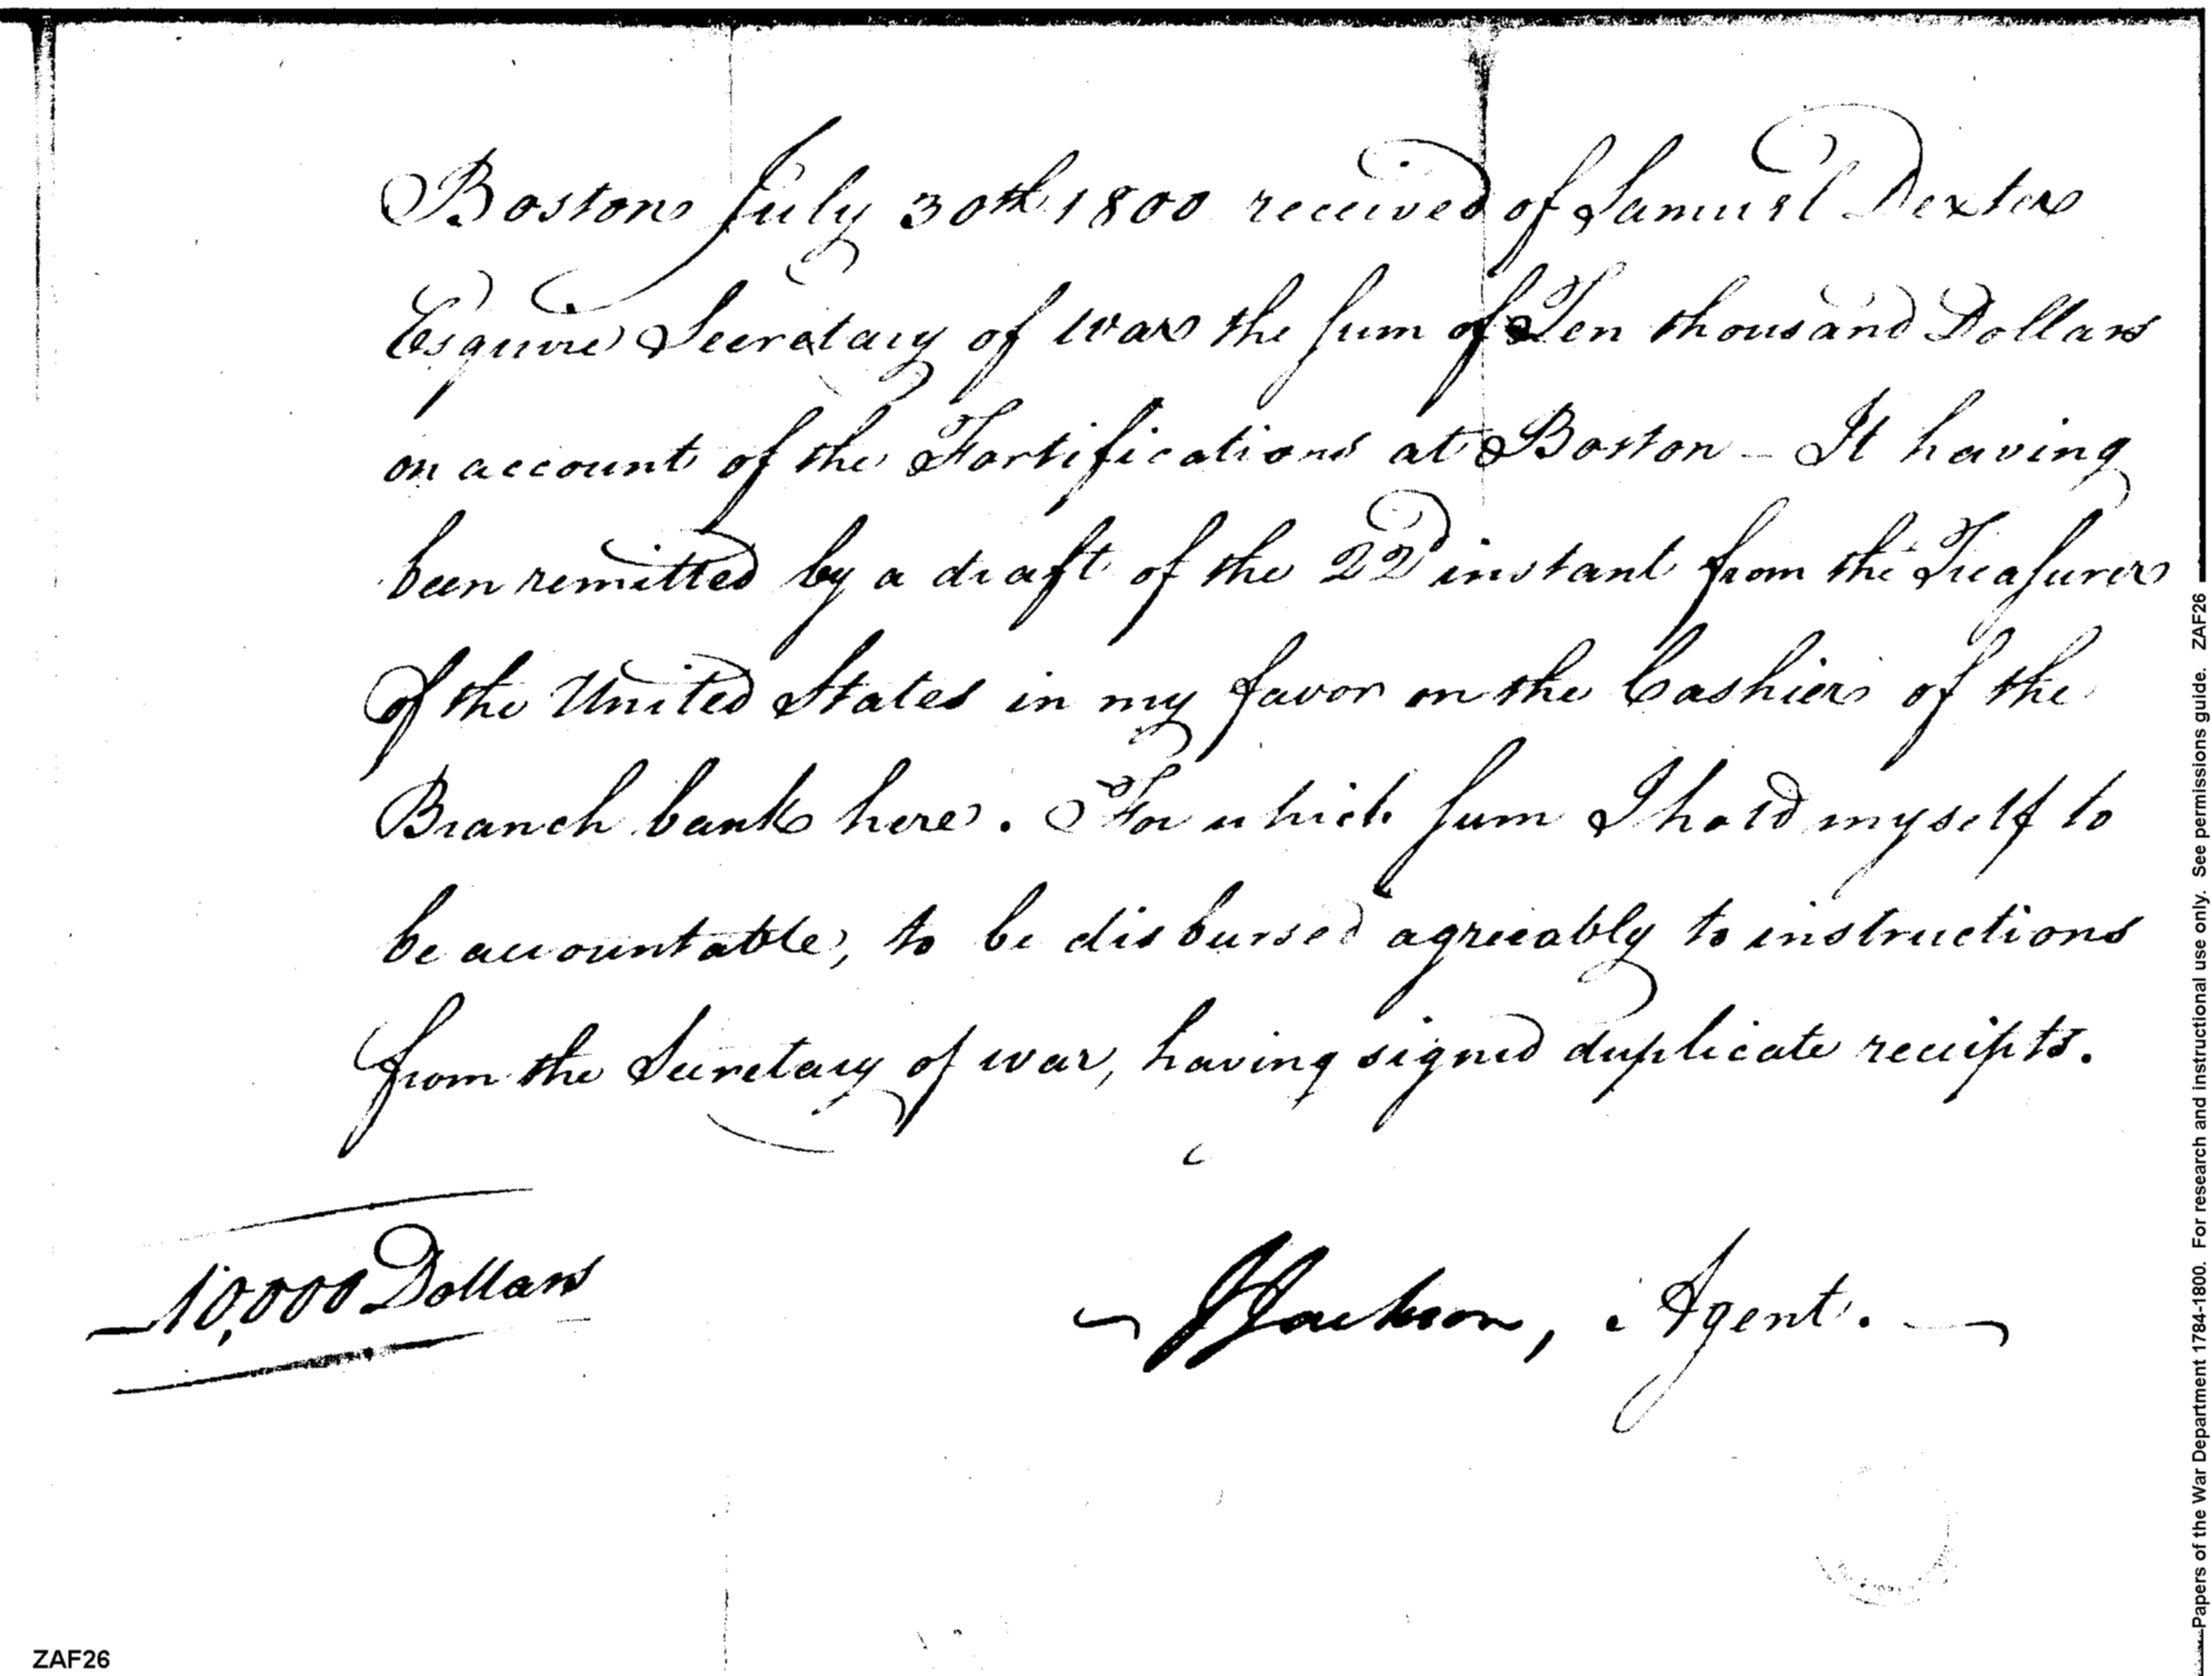 Boston July 30th 1800 received of Samuel Dexter
Esquire Secretary of war the sum of Ten thousand Dollars
on account of the Fortifications at Boston – It having
been remitted by a draft of the 22d instant from the Treasurer
of the United States in my favor on the Cashier of the
Branch bank here. For which sum I hold myself to
be accountable, to be disbursed agreeably to instructions
from the Secretary of war, having signed duplicate receipts.
10,000 Dollars
Jackson, Agent.
ZAF26
Papers of the War Department 1784-1800. For research and instructional use only. See permissions guide. ZAF26